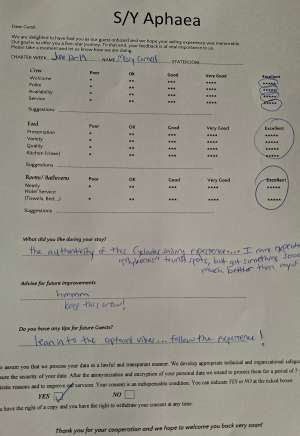 S/Y Aphaea
Dear Guest,
We are delighted to have had you as our guest onboard and we hope your sailing experience was memorable.
Our goal is to offer you a five-star journey. To that end, your feedback is of vital importance to us.
Please take a moment and let us know how we are doing.
CHARTER WEEK: June 2019 NAME: STATEROOM:
Crew Poor OK Good Very Good Excellent
Welcome * ** *** **** *****
Polite * ** *** **** *****
Availability * ** *** **** *****
Service * ** *** **** *****
Suggestions
Food Poor OK Good Very Good Excellent
Presentation * ** *** **** *****
Variety * ** *** **** *****
Quality * ** *** **** *****
Kitchen (crew) * ** *** **** *****
Suggestions
Rooms/ Bathrooms Poor OK Good Very Good Excellent
Ready * ** *** ****
Hotel Service
(Towels, Bed...) * ** *** ****
Suggestions
What did you like during your stay?
the authenticity of this Cyclades sailing experience... I
tourist spots, but got something
much better than
Advise for future improvements
hmmmm
keep this crew!
Do you have any tips for future Guests?
lean into the vibes... follow the experience!
assure you that we process your data in a lawful and transparent manner. We develop appropriate technical and organizational
the security of your data. After the anonymization and encryption of your personal data we stored to process them for a period of
reasons and to improve our services. Your consent is an indispensable condition. You can indicate YES or NO at the ticked boxes
YES NO
have the right of a copy and you have the right to withdraw your consent at any time.
Thank you for your cooperation and we hope to welcome you back very soon!